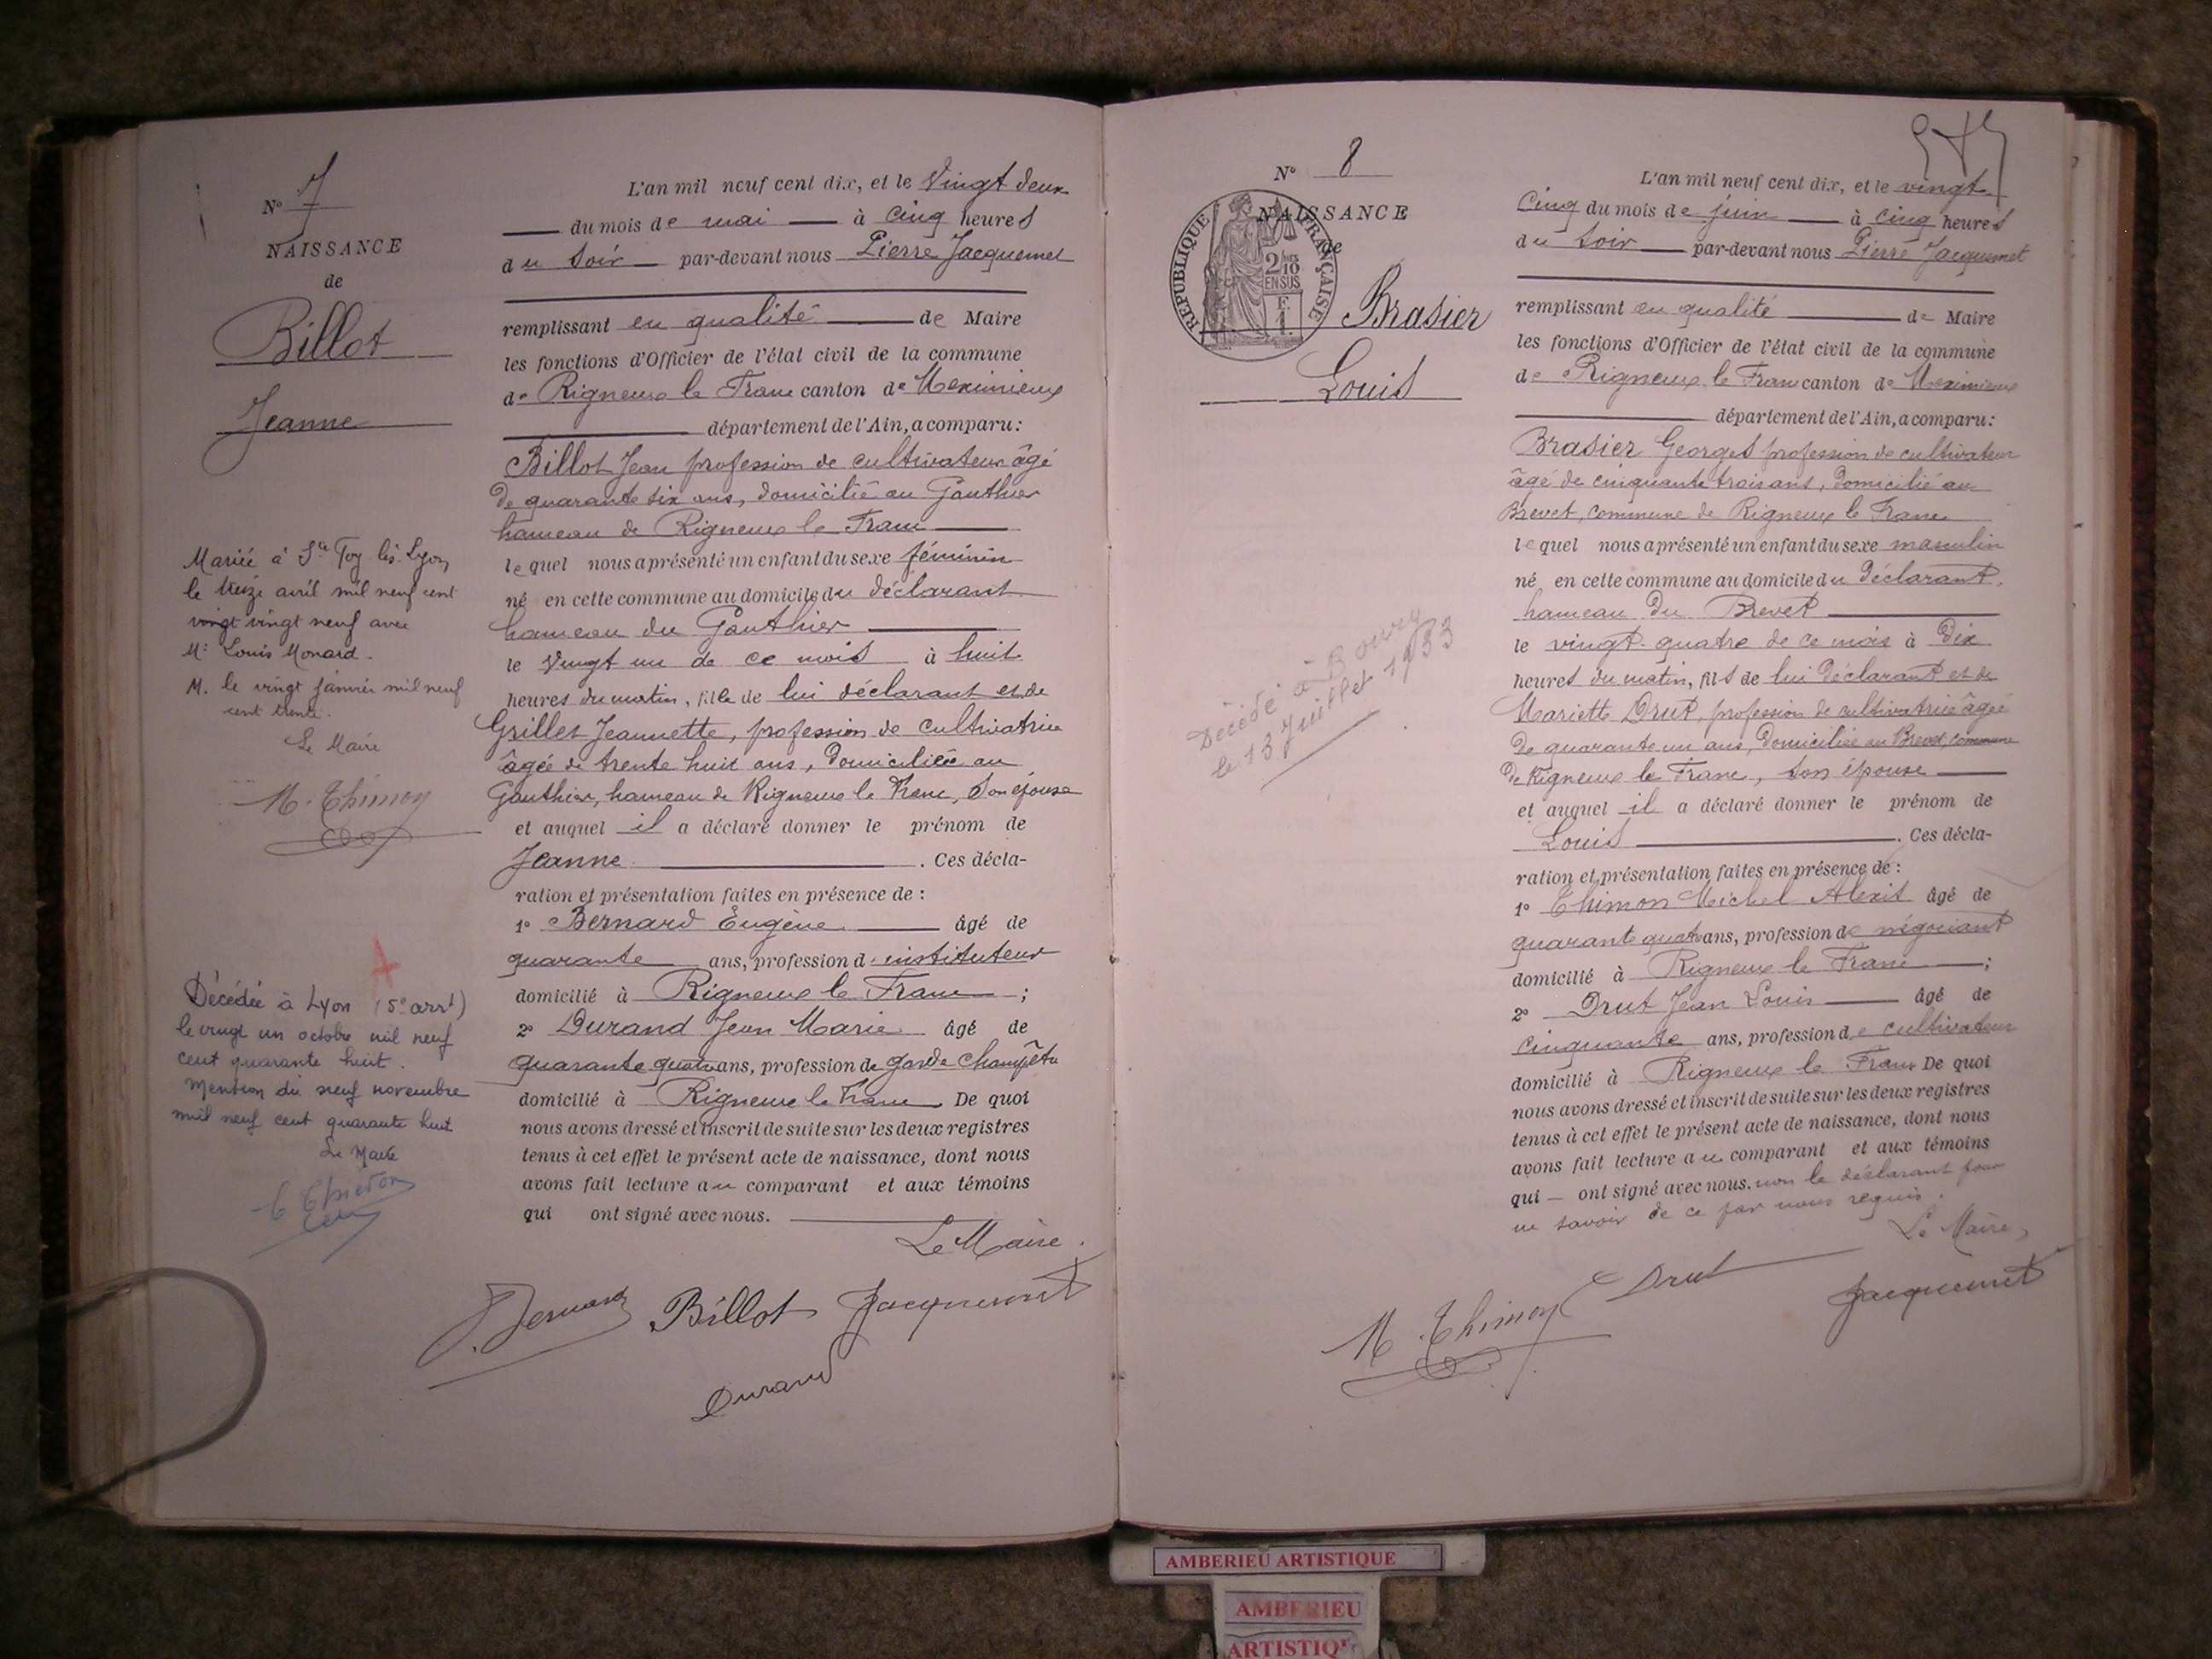 N° 7
NAISSANCE
de
Billot
Jeanne
Mariée à Ste Foy lès-Lyon
le treize avril mil neuf cent
vingt vingt neuf avec
Mr Louis Monard.
M. le vingt janvier mil neuf
cent trente.
Le Maire
M. Thimon
Décédée à Lyon (5e arrt)
le vingt un octobre mil neuf
cent quarante huit.
Mention du neuf novembre
mil neuf cent quarante huit
Le Maire
L'an mil neuf cent dix, et le Vingt deux
du mois de mai à cinq heures
du soir par-devant nous Pierre Jacquemet
remplissant en qualité de Maire
les fonctions d'Officier de l'état civil de la commune
de Rigneux le Franc canton de Meximieux
département de l'Ain, a comparu :
Billot Jean profession de cultivateur âgé
de quarante six ans, domicilié au Gauthier
hameau de Rigneux le Franc
lequel nous a présenté un enfant du sexe féminin
né en cette commune au domicile du déclarant
hameau du Gauthier
le Vingt un de ce mois à huit
heures du matin, fille de lui déclarant et de
Grillet Jeannette, profession de cultivatrice
âgée de trente huit ans, domiciliée au
Gauthier, hameau de Rigneux le Franc, son épouse
et auquel il a déclaré donner le prénom de
Jeanne. Ces décla-
ration et présentation faites en présence de :
1° Bernard Eugène âgé de
quarante ans, profession d'instituteur
domicilié à Rigneux le Franc ;
2° Durand Jean Marie âgé de
quarante quatre ans, profession de garde champêtre
domicilié à Rigneux le Franc De quoi
nous avons dressé et inscrit de suite sur les deux registres
tenus à cet effet le présent acte de naissance, dont nous
avons fait lecture au comparant et aux témoins
qui ont signé avec nous.
Le Maire.
Bernard Billot Jacquemet
Durand
N° 8
NAISSANCE
de
RÉPUBLIQUE FRANÇAISE
2/10
EN SUS
F
1.
Brasier
Louis
Décédé à Bourg
le 13 Juillet 1933
L'an mil neuf cent dix, et le vingt
cinq du mois de juin à cinq heures
du soir par-devant nous Pierre Jacquemet
remplissant en qualité de Maire
les fonctions d'Officier de l'état civil de la commune
de Rigneux le Franc canton de Meximieux
département de l'Ain, a comparu :
Brasier Georges profession de cultivateur
âgé de cinquante trois ans, domicilié au
Brevet, commune de Rigneux le Franc
lequel nous a présenté un enfant du sexe masculin
né en cette commune au domicile du déclarant,
hameau du Brevet
le vingt-quatre de ce mois à dix
heures du matin, fils de lui déclarant et de
Mariette Drut, profession de cultivatrice âgée
de quarante un ans, domiciliée au Brevet, commune
de Rigneux le Franc, son épouse
et auquel il a déclaré donner le prénom de
Louis. Ces décla-
ration et présentation faites en présence de :
1° Thimon Michel Alexis âgé de
quarante quatre ans, profession de négociant
domicilié à Rigneux le Franc ;
2° Drut Jean Louis âgé de
cinquante ans, profession de cultivateur
domicilié à Rigneux le Franc De quoi
nous avons dressé et inscrit de suite sur les deux registres
tenus à cet effet le présent acte de naissance, dont nous
avons fait lecture au comparant et aux témoins
qui — ont signé avec nous. non le déclarant pour
ne savoir de ce par nous requis.
Le Maire,
M. Thimon Drut Jacquemet
AMBERIEU ARTISTIQUE
AMBERIEU
ARTISTIQU